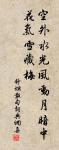 空外水光風動月暗中
花氣雪藏梅